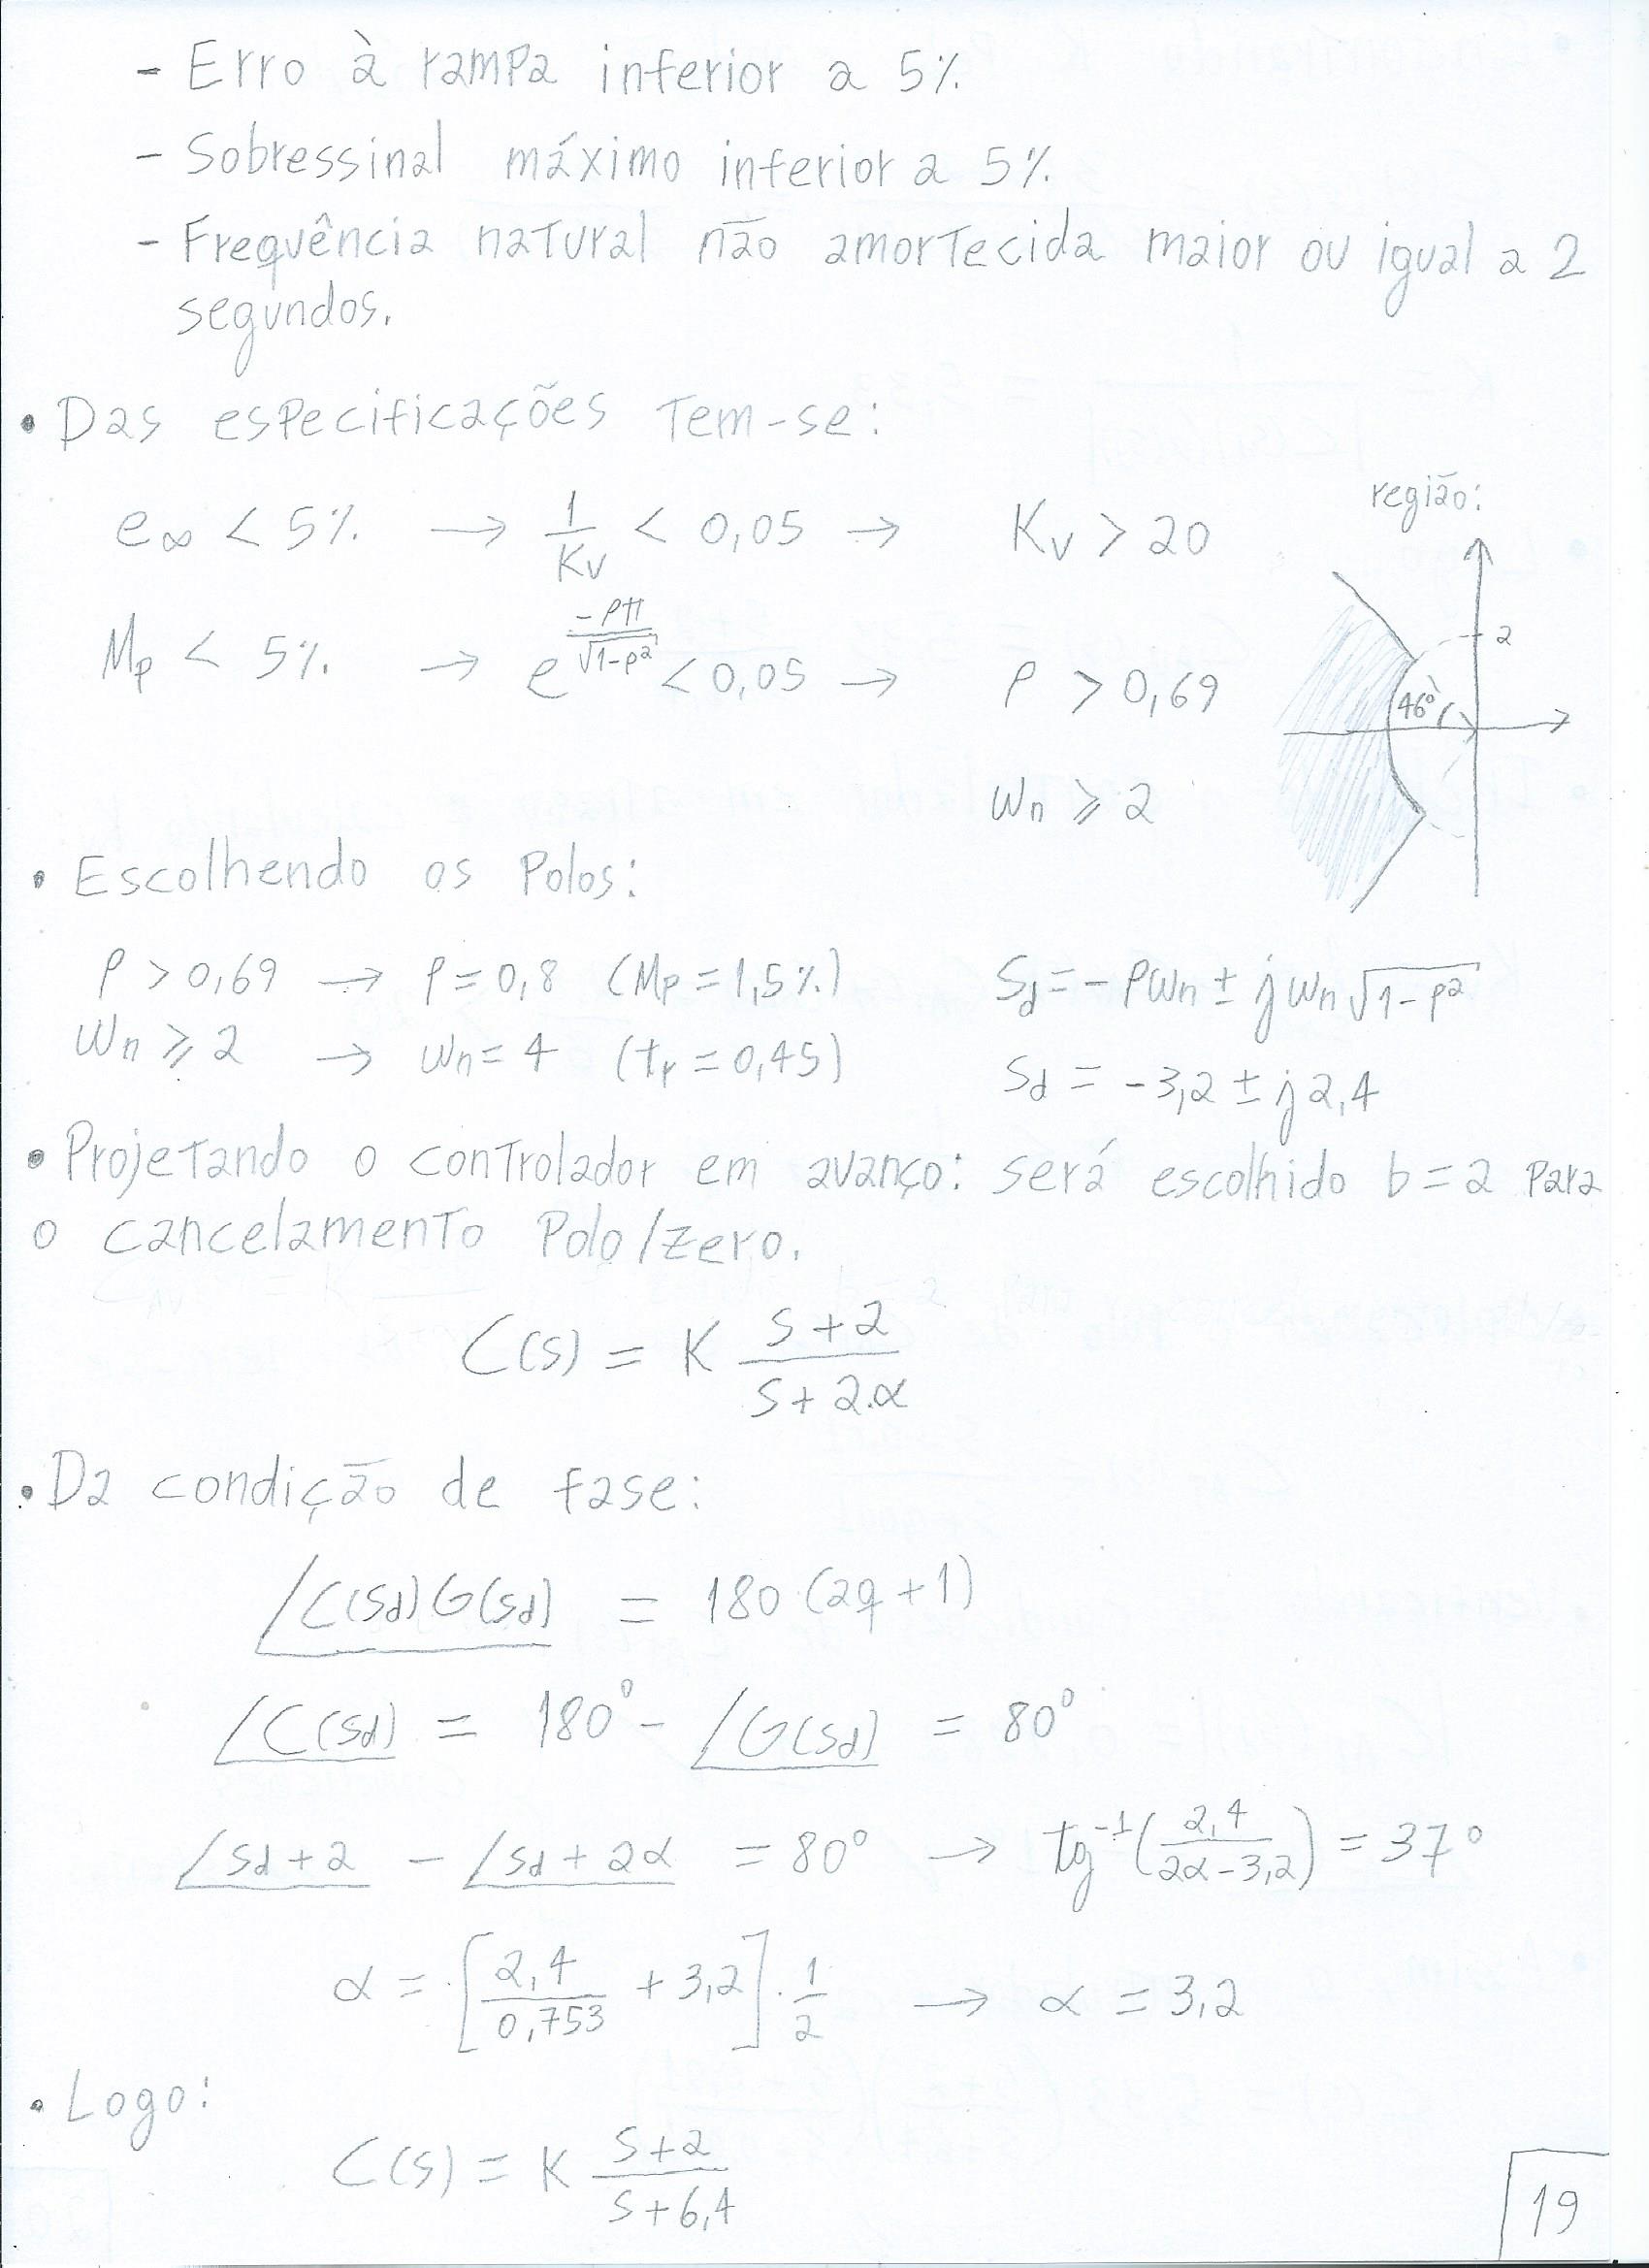 - Erro à rampa inferior a 5%.
- Sobressinal máximo inferior a 5%.
- Frequência natural não amortecida maior ou igual a 2
segundos.
• Das especificações tem-se:
região:
e∞ < 5% → 1/Kv < 0,05 → Kv > 20
2
Mp < 5% → e^(-ρπ/√(1-ρ²)) < 0,05 → ρ > 0,69
46°
ωn ≥ 2
• Escolhendo os polos:
ρ > 0,69 → ρ = 0,8 (Mp = 1,5%) Sd = - ρωn ± jωn√(1-ρ²)
ωn ≥ 2 → ωn = 4 (tr = 0,45) Sd = -3,2 ± j2,4
• Projetando o controlador em avanço: será escolhido b = 2 para
o cancelamento polo/zero.
C(s) = K (s+2)/(s+2.α)
• Da condição de fase:
∠C(sd)G(sd) = 180(2q+1)
∠C(sd) = 180° - ∠G(sd) = 80°
∠sd+2 - ∠sd+2α = 80° → tg⁻¹(2,4/(2α-3,2)) = 37°
α = [2,4/0,753 + 3,2] . 1/2 → α = 3,2
• Logo:
C(s) = K (s+2)/(s+6,4)
19